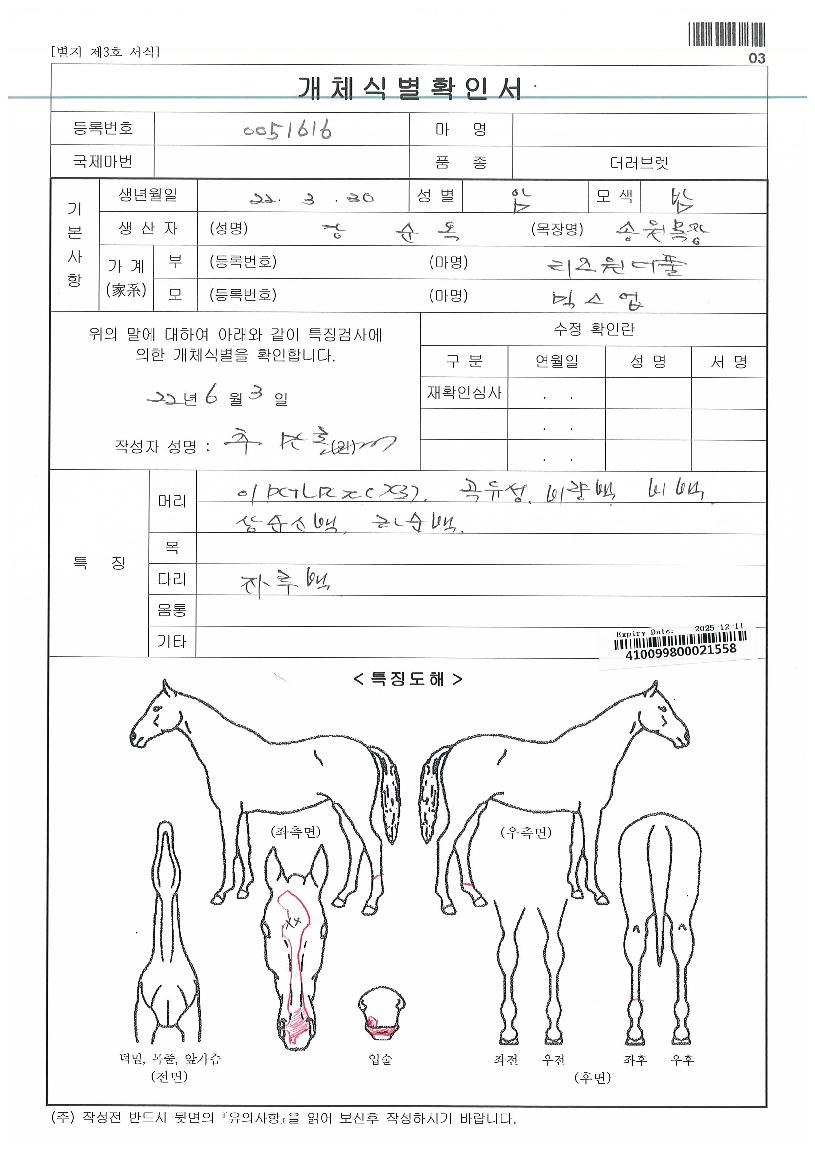 [별지 제3호 서식]
03
개체식별확인서
등록번호 0051616 마 명
국제마번 품 종 더러브렛
기본사항
생년월일 22. 3. 30 성 별 암 모 색 밤
생 산 자 (성명) 강 순 옥 (목장명) 송원목장
가 계 (家系) 부 (등록번호) (마명) 리즈원더풀
모 (등록번호) (마명) 믹스업
위의 말에 대하여 아래와 같이 특징검사에
의한 개체식별을 확인합니다.
22년 6월 3일
작성자 성명 : (인)
수정 확인란
구 분 연월일 성 명 서 명
재확인심사 . .
. .
. .
특 징
머리 곡유성, 비량백, 비백,
상순소백, 하순백.
목
다리 좌후백
몸통
기타
Expiry Date: 2025-12-11
410099800021558
< 특징도해 >
(좌측면) (우측면)
턱밑, 목줄, 앞가슴
(전면)
입술
좌전 우전 좌후 우후
(후면)
(주) 작성전 반드시 뒷면의 『유의사항』을 읽어 보신후 작성하시기 바랍니다.